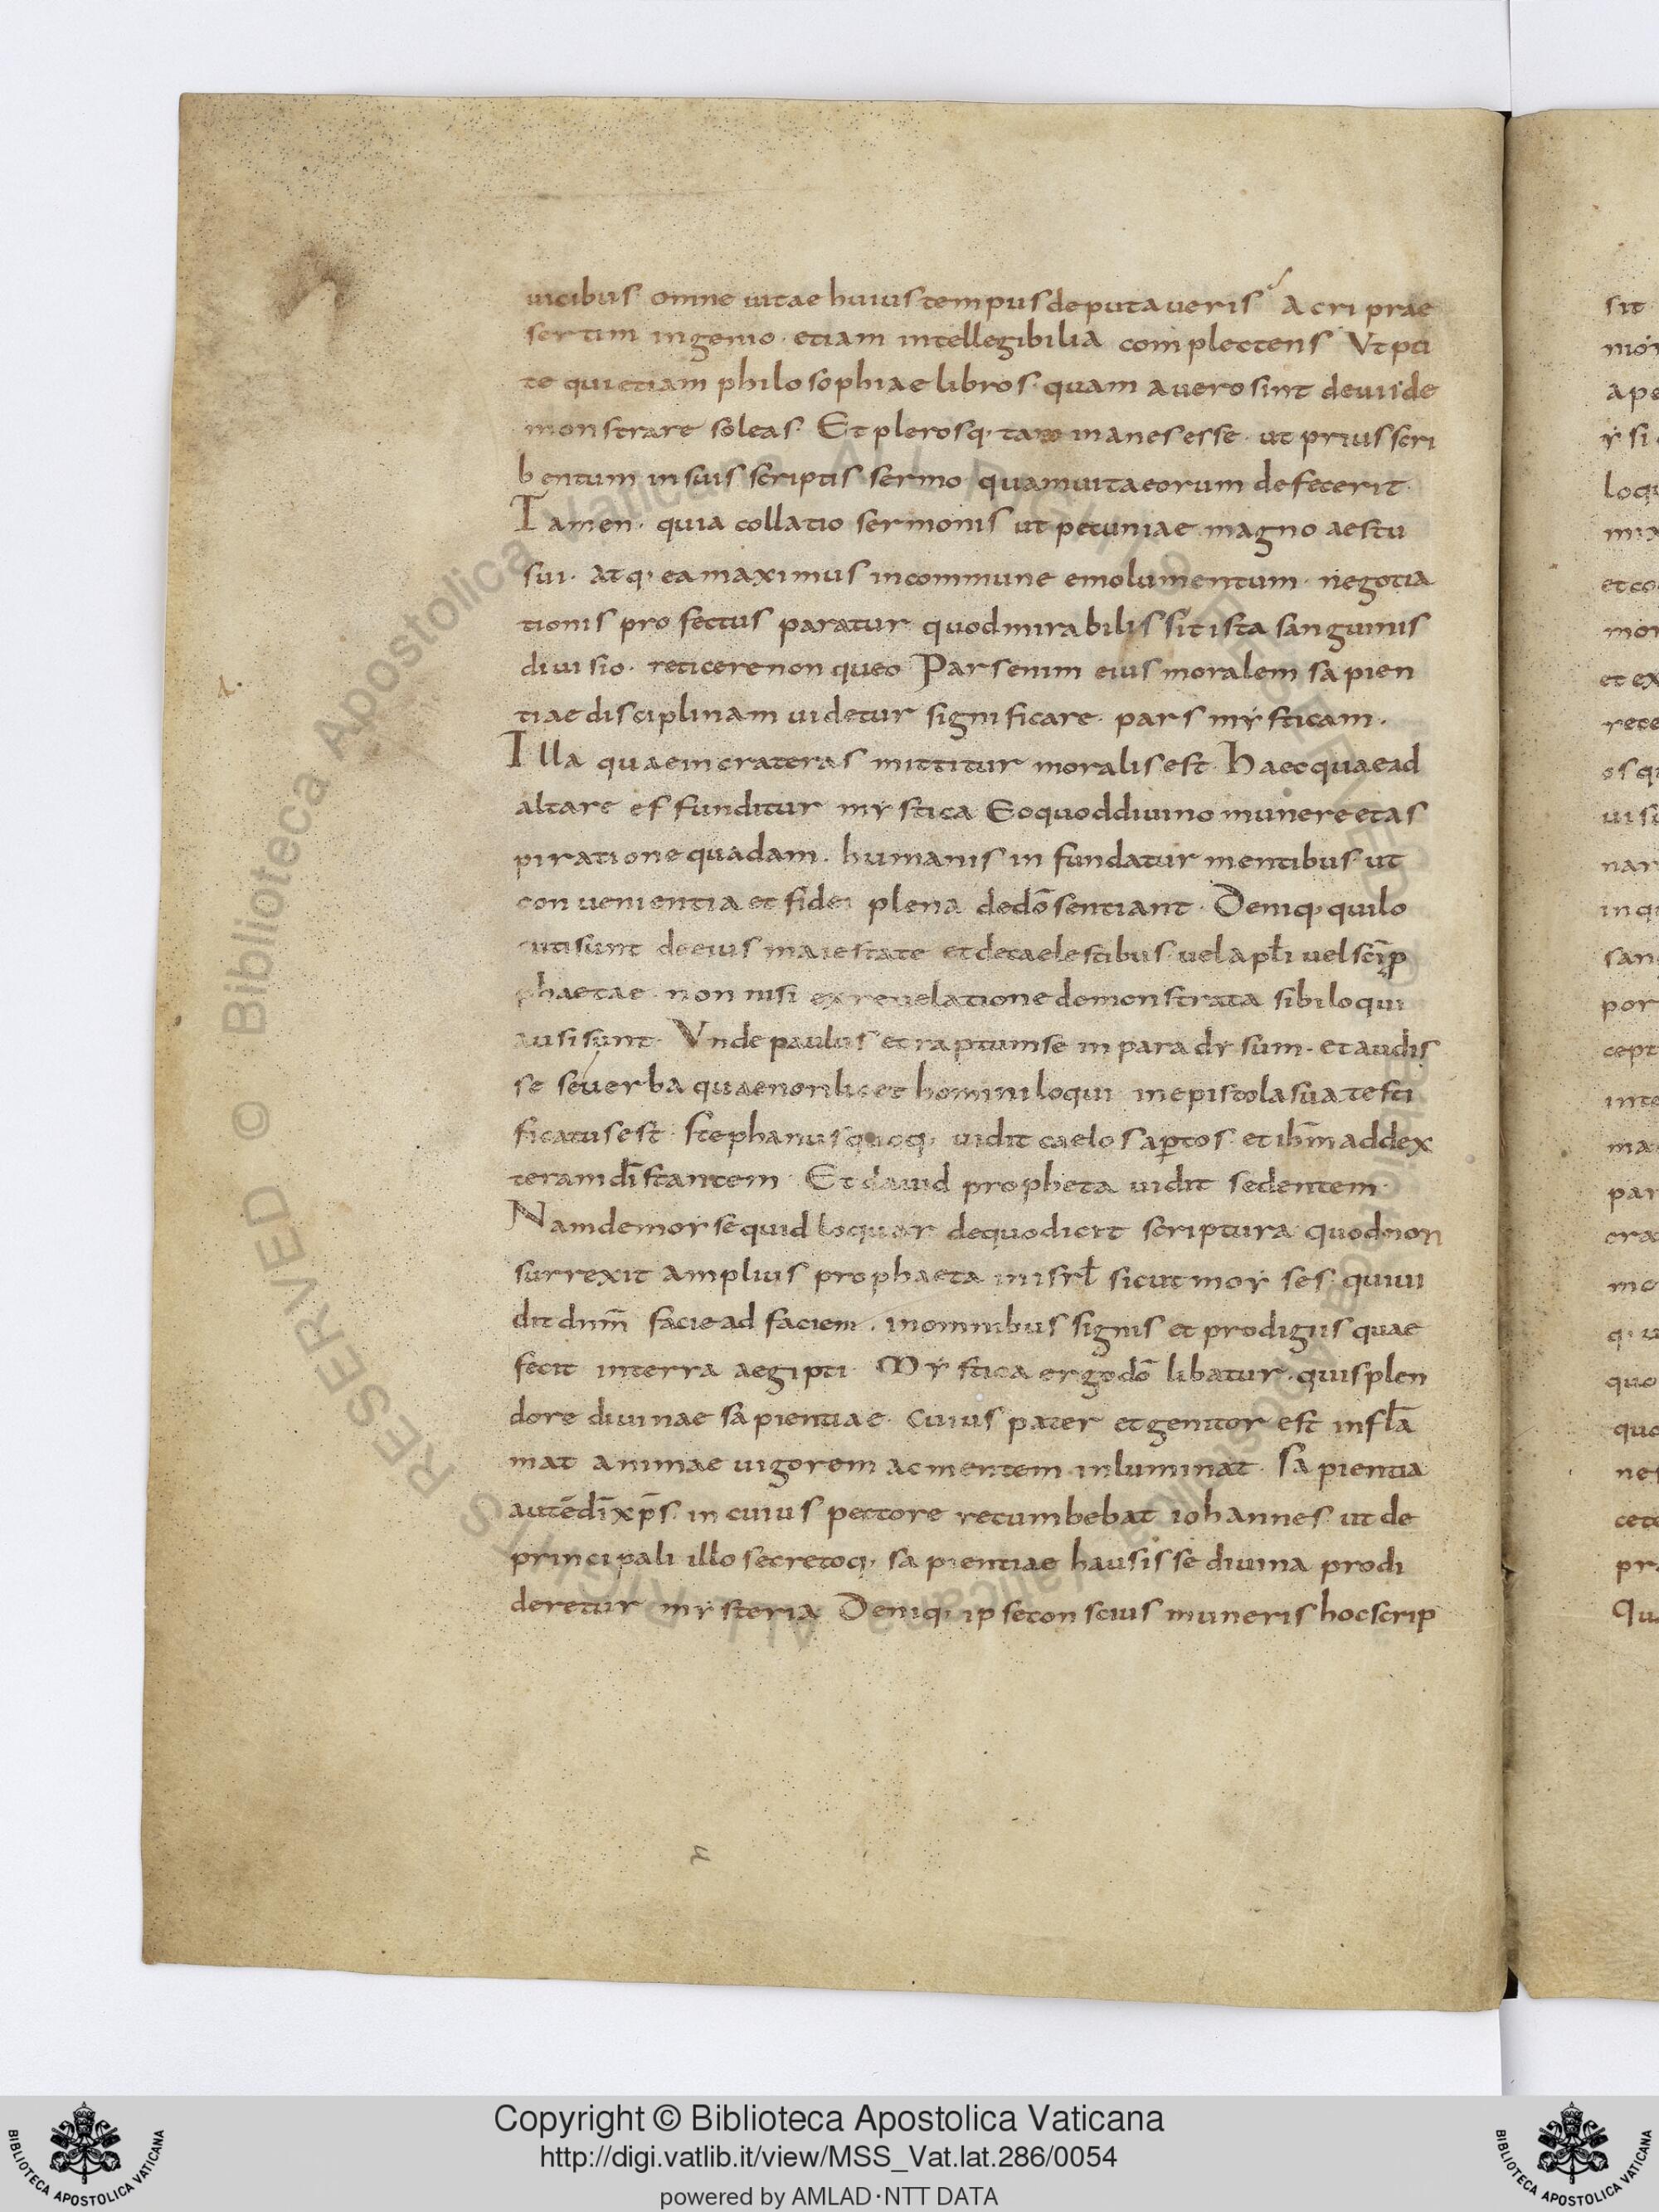 uicibus omne uitae huius tempus deputaueris Acri prae
sertim ingenio · etiam intellegibilia complectens Vt pu
te qui etiam philosophiae libros · quam a uero sint deuii de
monstrare soleas · Et plerosq· tam inanes esse · ut prius scri
bentum in suis scriptis sermo quam uita eorum defecerit ·
Tamen · quia collatio sermonis ut pecuniae magno aestu
sui · atq· ea maximus in commune emolumentum · negotia
tionis profectus paratur quod mirabilis sit ista sanguinis
diuisio · reticere non queo Pars enim eius moralem sapien
tiae disciplinam uidetur significare · pars mẏsticam ·
Illa quae in crateras mittitur moralis est · Haec quae ad
altare effunditur mẏstica Eo quod diuino munere et as
piratione quadam · humanis infundatur mentibus ut
conuenientia et fidei plena de dō sentiant · Deniq· qui lo
cuti sunt de eius maiestate et de caelestibus · uel apłi uel scī p
phaetae · non nisi ex reuelatione demonstrata sibi loqui
ausi sunt · Vnde paulus et raptum se in paradẏsum · et audis
se se uerba quae non licet homini loqui in epistola sua testi
ficatus est · Stephanus quoq· uidit caelos aptos et ihm̄ ad dex
teram dī stantem · Et dauid propheta uidit sedentem ·
Nam de moẏse quid loquar de quo dicit scriptura quod non
surrexit amplius prophaeta in isrł sicut moẏses · qui ui
dit dnm̄ facie ad faciem · in omnibus signis et prodigiis quae
fecit in terra aegipti · Mẏstica ergo dō libatur · qui splen
dore diuinae sapientiae · cuius pater et genitor est inflā
mat animae uigorem ac mentem inluminat · Sapientia
autē dī xp̄s · in cuius pectore recumbebat iohannes ut de
principali illo secretoq· sapientiae hausisse diuina prodi
deretur mẏsteria Deniq· ipse conscius muneris hoc scrip